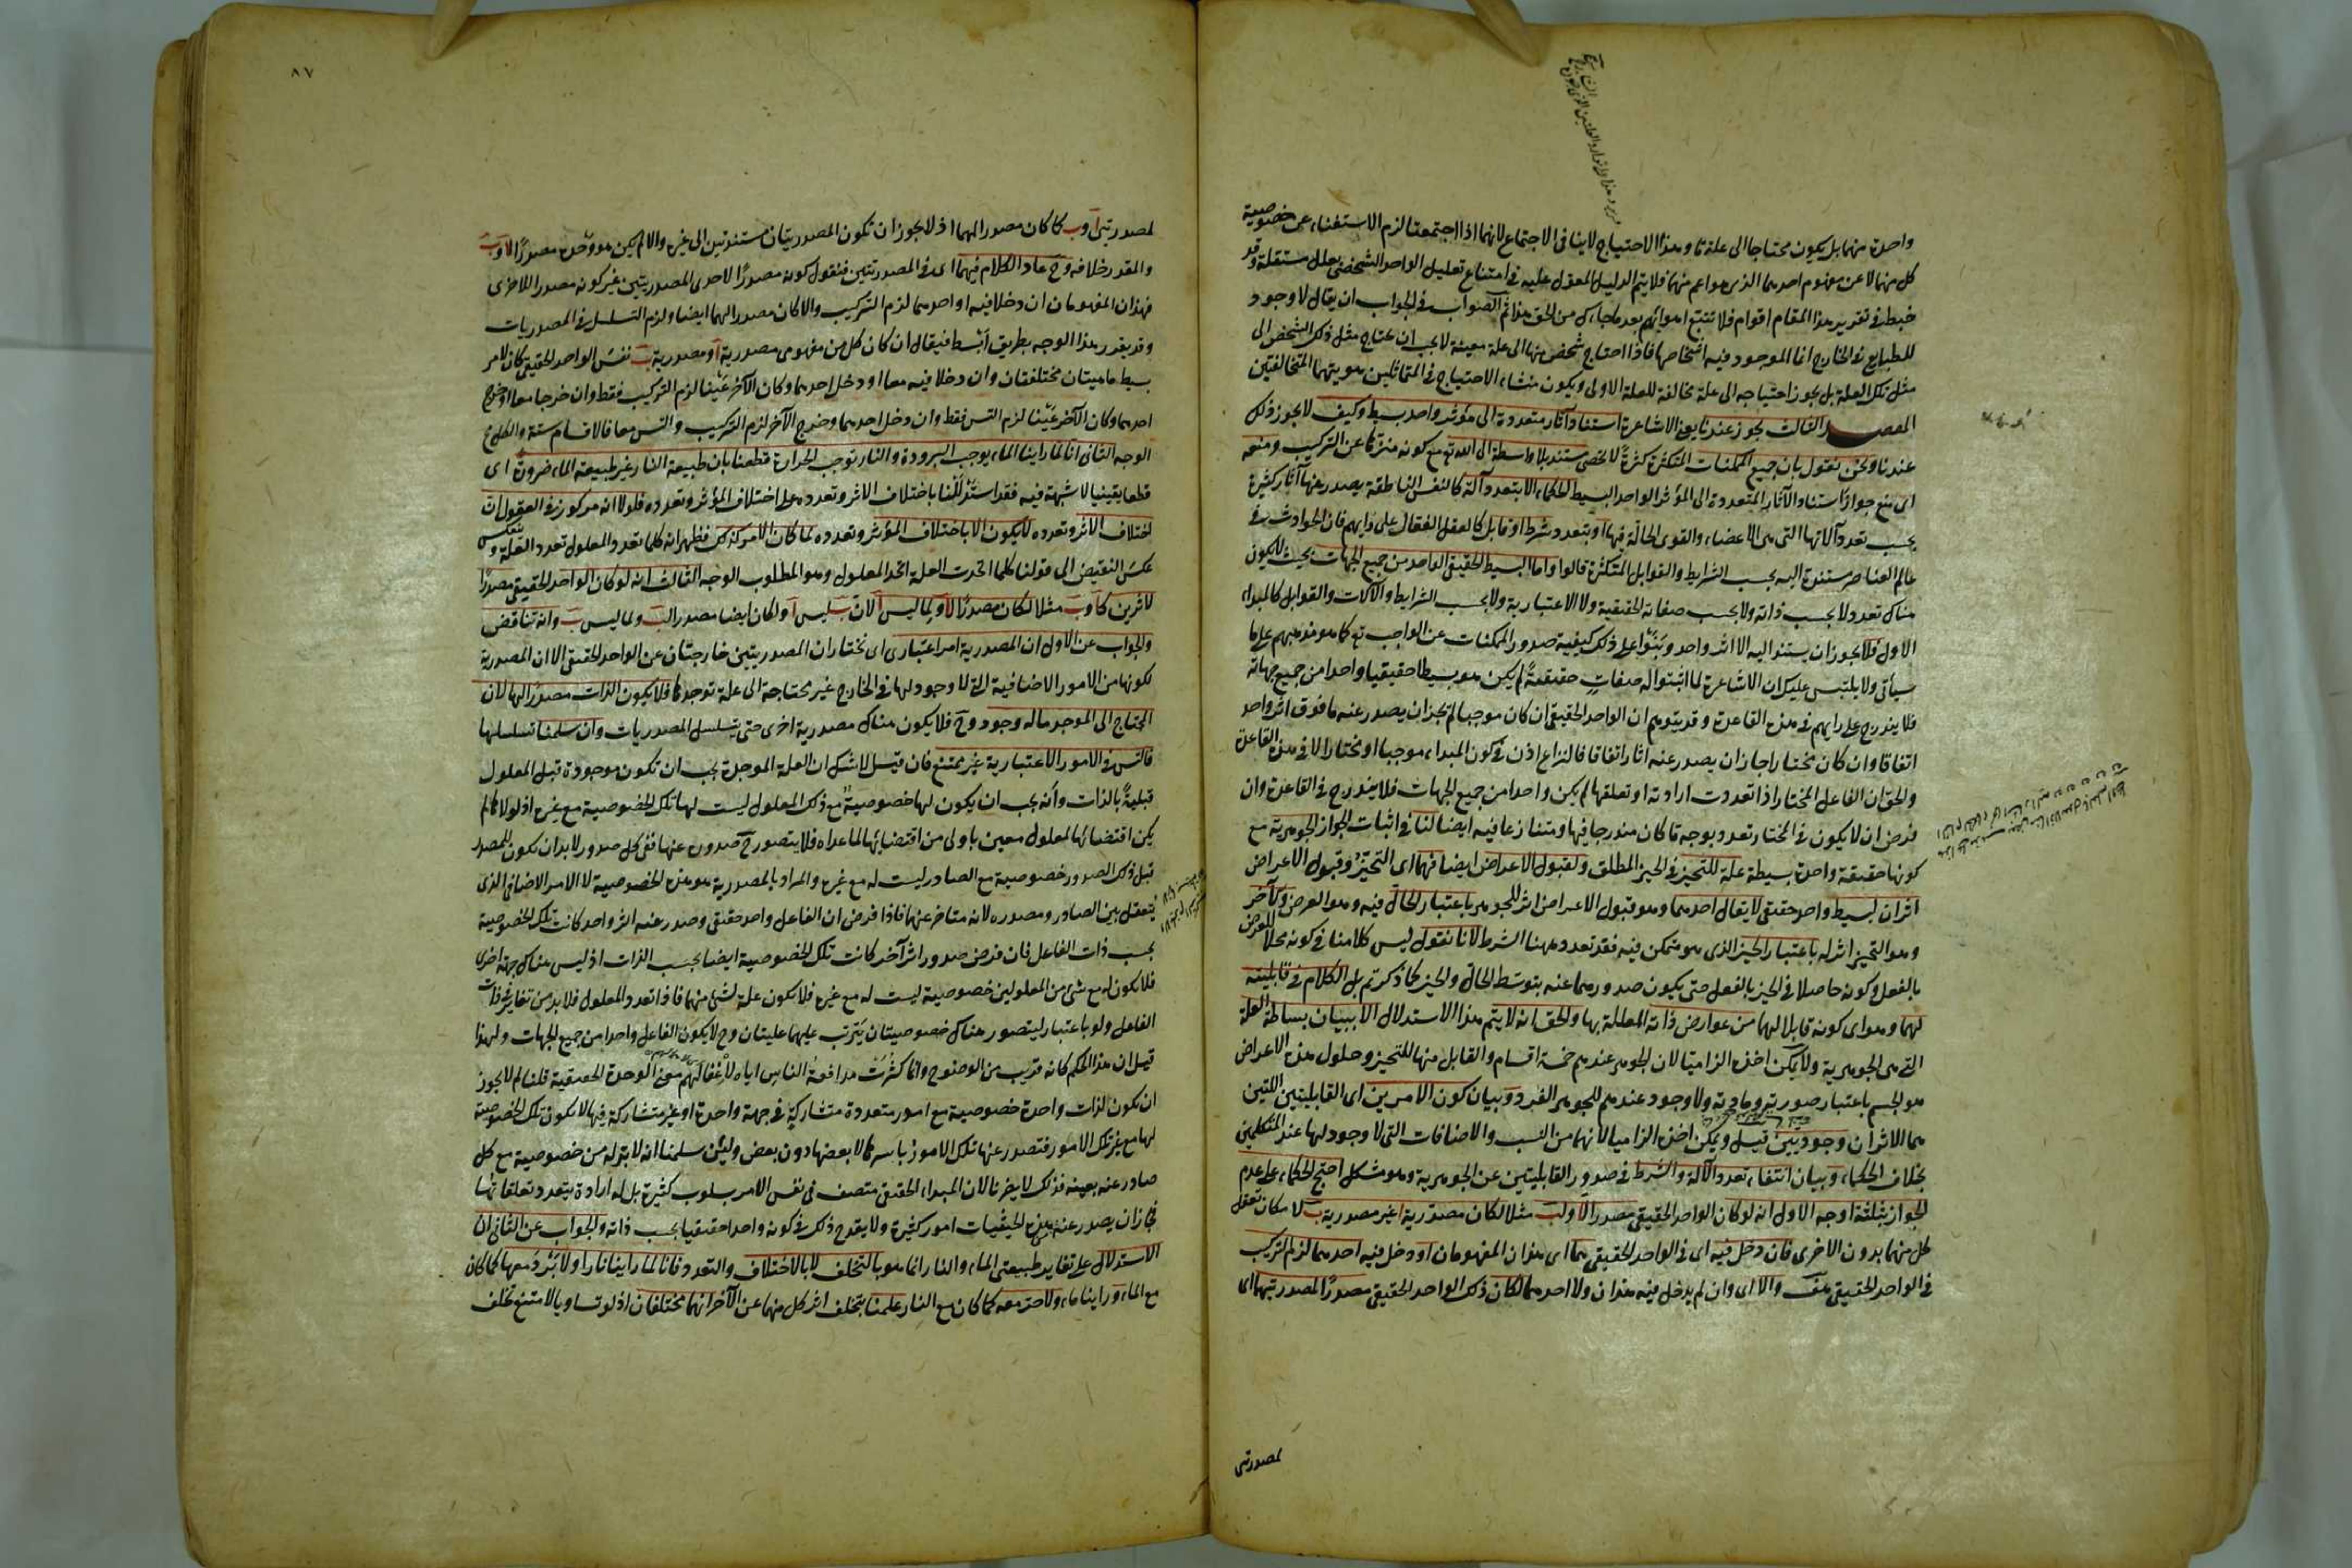 واحدة منهما بل يكون محتاجا الى علة ما وهذا الاحتياج لا ينافى الاجتماع لانهما اذا اجتمعتا لزم الاستغناء عن خصوصية
كل منهما لا عن مفهوم احدهما الذى هو اعم منهما فلا يتم الدليل المعول عليه فى امتناع تعليل الواحد الشخصى بعلل مستقلة وقد
خبط فى تقرير هذا المقام اقوام فلا تتبع اهوائهم بعد ما جاءك من الحق هذا ثم الصواب فى الجواب ان يقال لا وجود
للطبايع فى الخارج انما الموجود فيه اشخاصها فاذا احتاج شخص منها الى علة معينة لا يجب ان يحتاج مثل ذلك الشخص الى
مثل تلك العلة بل يجوز احتياجه الى علة مخالفة للعلة الاولى ويكون منشاء الاحتياج فى المتماثلين هويتهما المتخالفتين
المقصد الثالث يجوز عندنا يعنى الاشاعرة استناد آثار متعددة الى مؤثر واحد بسيط وكيف لا يجوز ذلك
عندنا ونحن نقول بان جميع الممكنات المتكثرة كثرةً لا تحصى مستند بلا واسطة الى الله تع مع كونه منزها عن التركيب ومنعه
اى منع جواز استناد الآثار المتعددة الى المؤثر الواحد البسيط الحكماء الا بتعدد آلة كالنفس الناطقة يصدر عنها آثار كثيرة
بحسب تعدد آلاتها التى هى الاعضاء والقوى الحالة فيها او بتعدد شرط او قابل كالعقل الفعال على رايهم فان الحوادث فى
عالم العناصر مستندة اليه بحسب الشرايط والقوابل المتكثرة قالوا واما البسيط الحقيقى الواحد من جميع الجهات بحيث لا يكون
هناك تعدد لا بحسب ذاته ولا بحسب صفاته الحقيقية ولا الاعتبارية ولا بحسب الشرايط والآلات والقوابل كالمبداء
الاول فلا يجوز ان يستند اليه الا اثر واحد وبَنَوْا على ذلك كيفية صدور الممكنات عن الواجب تع كما هو مذهبهم على ما
سيأتى ولا يلتبس عليك ان الاشاعرة لما اثبتوا له صفاتٍ حقيقيةً لم يكن هو بسيطا حقيقيا واحدا من جميع جهاته
فلا يندرج على رايهم فى هذه القاعدة وقد يتوهم ان الواحد الحقيقى ان كان موجبا لم يجز ان يصدر عنه ما فوق اثر واحد
اتفاقا وان كان مختارا جاز ان يصدر عنه آثار اتفاقا فالنزاع اذن فى كون المبداء موجبا او مختارا لا فى هذه القاعدة
والحق ان الفاعل المختار اذا تعددت ارادته او تعلقها لم يكن واحدا من جميع الجهات فلا يندرج فى القاعدة وان
فرض ان لا يكون فى المختار تعدد بوجه ما كان مندرجا فيها ومتنازعا فيه ايضا لنا فى اثبات الجواز الجوهرية مع
كونها حقيقة واحدة بسيطة علة للتحيز فى الحيز المطلق ولقبول الاعراض ايضا فهما اى التحيّزُ وقبول الاعراض
اثران لبسيط واحد حقيقى لا يقال احدهما وهو قبول الاعراض اثر للجوهر باعتبار الحالّ فيه وهو العرض وكآخر
وهو التحيز اثر له باعتبار الحيز الذى هو متمكن فيه فقد تعدد ههنا الشرط لانا نقول ليس كلامنا فى كونه محلا للعرض
بالفعل وكونه حاصلا فى الحيز بالفعل حتى يكون صدورهما عنه بتوسّط الحالّ والحيز كما ذكرتم بل الكلام فى قابليته
لهما وهو اى كونه قابلا لهما من عوارض ذاته المعللة بها والحق انه لا يتم هذا الاستدلال الا ببيان بساطة العلة
التى هى الجوهرية ولا يمكن اخذه الزاميا لان الجوهر عندهم خمسة اقسام والقابل منها للتحيز وحلول هذه الاعراض
هو الجسم باعتبار صورته ومادته ولا وجود عندهم للجوهر الفرد وبيان كون الامرين اى القابليتين اللتين
هما الاثران وجوديتين قيل ويمكن اخذه الزاميا لانهما من النسب والاضافات التى لا وجود لها عند المتكلمين
بخلاف الحكماء وبيان انتفاء تعدد الآلة والشرط فى صدور القابليتين عن الجوهرية وهو مشكل احتج الحكماء على عدم
الجواز بثلثة اوجه الاول انه لو كان الواحد الحقيقى مصدرا لآ ولبَ مثلا لكان مصدرية آ غير مصدرية بَ لامكان تعقل
كل منهما بدون الاخرى فان دخل فيه اى فى الواحد الحقيقى هما اى هذان المفهومان او دخل فيه احدهما لزم التركيب
فى الواحد الحقيقى هف والا اى وان لم يدخل فيه هذان ولا احدهما لكان ذلك الواحد الحقيقى مصدرًا لمصدرتيهما اى
لمصدرتى
٨٧
لمصدرتى آ وبَ كما كان مصدرا لهما اذ لا يجوز ان تكون المصدريتان مستندتين الى غيره والا لم يكن هو وحده مصدرًا لآ وبَ
والمقدر خلافه وح عاد الكلام فيهما اى فى المصدريتين فنقول كونه مصدرًا لاحدى المصدريتين غير كونه مصدرا للاخرى
فهذان المفهومان ان دخلا فيه او احدهما لزم التركيب والا كان مصدرا لهما ايضا ولزم التسلسل فى المصدريات
وقد يقرر هذا الوجه بطريق ابسط فيقال ان كان كل من مفهومى مصدرية آ ومصدرية بَ نفسَ الواحد الحقيقى كان لامر
بسيط ماهيتان مختلفتان وان دخلا فيه معا او دخل احدهما وكان الآخر عَيْنا لزم التركيب فقط وان خرجا معا او خرج
احدهما وكان الآخر عَيْنا لزم التس فقط وان دخل احدهما وخرج الآخر لزم التركيب والتس معا فالاقسام ستة والكل مح
الوجه الثانى انا لما راينا الماء يوجب البرودة والنار توجب الحرارة قطعنا بان طبيعة النار غير طبيعة الماء ضرورة اى
قطعا يقينيا لا شبهة فيه فقد استدْلَلْنا باختلاف الاثر وتعدده على اختلاف المؤثر وتعدده فلولا انه مركوز فى العقول ان
اختلاف الاثر وتعدده لا يكون الا باختلاف المؤثر وتعدده لما كان الامر كذلك فظهر انه كلما تعدد المعلول تعدد العلة وينعكس
عكسَ النقيض الى قولنا كلما اتحدت العلة اتحد المعلول وهو المطلوب الوجه الثالث انه لو كان الواحد الحقيقى مصدرًا
لاثرين كآ وبَ مثلا لكان مصدرًا لآ ولما ليس آ لان بَ ليس آ ولكان ايضا مصدرا لبَ ولما ليس بَ وانه تناقض
والجواب عن الاول ان المصدرية امر اعتبارى اى نختار ان المصدريتين خارجتان عن الواحد الحقيقى الا ان المصدرية
لكونها من الامور الاضافية التى لا وجود لها فى الخارج غير محتاجة الى علة توجدها فلا يكون الذات مصدرًا لها لان
المحتاج الى الموجد ماله وجود وح فلا يكون هناك مصدرية اخرى حتى يتسلسل المصدريات وان سلمنا تسلسلها
فالتس فى الامور الاعتبارية غير ممتنع فان قيل لا شك ان العلة الموجدة يجب ان تكون موجودة قبل المعلول
قبليةً بالذات وأنه يجب ان يكون لها خصوصيةٌ مع ذلك المعلول ليست لها تلك الخصوصية مع غيره اذ لولاها لم
يكن اقتضائها لمعلول معين باولى من اقتضائها لما عداه فلا يتصور ح صدوره عنها ففى كل صدور لا بد ان يكون للمصدر
قبل ذلك الصدور خصوصية مع الصادر ليست له مع غيره والمراد بالمصدرية هو هذه الخصوصية لا الامر الاضافى الذى
يتعقل بين الصادر ومصدره لانه متاخر عنها فاذا فرض ان الفاعل واحد حقيقى وصدر عنه اثر واحد كانت تلك الخصوصية
بحسب ذات الفاعل فان فرض صدور اثر آخر كانت تلك الخصوصية ايضا بحسب الذات اذ ليس هناك جهة اخرى
فلا يكون له مع شئ من المعلولين خصوصية ليست له مع غيره فلا يكون علة لشئ منهما فاذا تعدد المعلول فلا بد من تغاير فى ذات
الفاعل ولو باعتبار ليتصور هناك خصوصيتان يَترتب عليهما عليتان وح لا يكون الفاعل واحدا من جميع الجهات ولهذا
قيل ان هذا الحكم كانه قريب من الوضوح وانما كثُرَت مدافعة الناس اياه لاغفالهم معنى الوحدة الحقيقية قلنا لم لا يجوز
ان يكون لذات واحدة خصوصية مع امور متعددة متشاركةٍ فى جهة واحدة او غير متشاركة فيها لا يكون تلك الخصوصية
لها مع غير تلك الامور فتصدر عنها تلك الامور باسرها لا بعضها دون بعض ولئن سلمنا انه لا بدّ له من خصوصية مع كل
صادر عنه بعينه فذلك لا يضرنا لان المبداء الحقيقى متصف فى نفس الامر بسلوب كثيرة بل له ارادة يتعدد تعلقاتها
فجاز ان يصدر عنه بهذه الحيثيات امور كثيرة ولا يقدح ذلك فى كونه واحدا حقيقيا بحسب ذاته والجواب عن الثانى ان
الاستدلال على تغاير طبيعتى الماء والنار انما هو بالتخلف لا بالاختلاف والتعدد فانا لما راينا نارا ولا بَرْدَ معها كما كان
مع الماء وراينا ماء ولا حرّ معه كما كان مع النار علمنا بتخلف اثر كل منهما عن الآخر انهما مختلفان اذ لو تساويا لامتنع تخلف